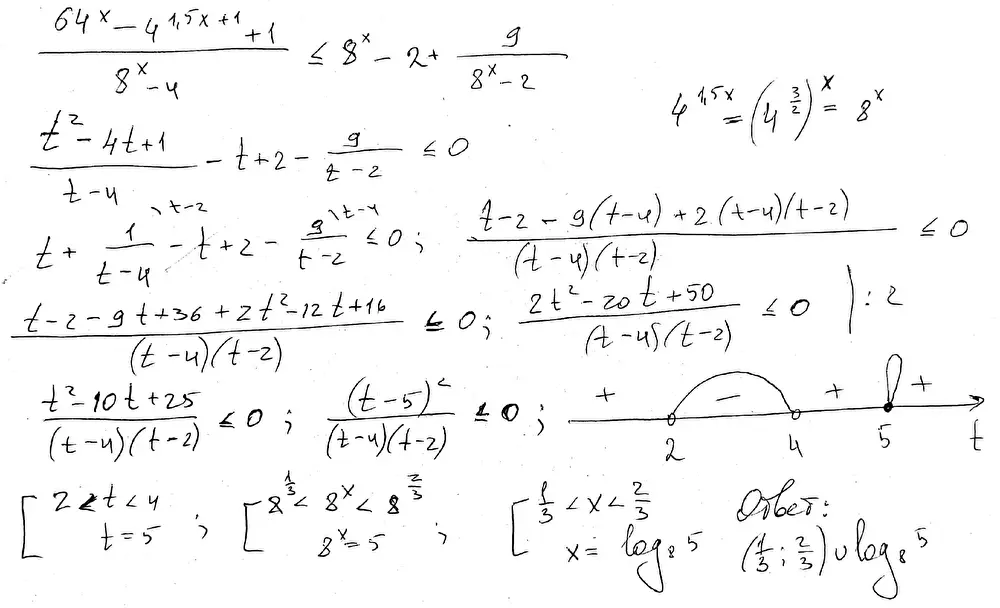 (64^x − 4^(1,5x+1) + 1)/(8^x − 4) ≤ 8^x − 2 + 9/(8^x − 2)
4^(1,5x) = (4^(3/2))^x = 8^x
(t² − 4t + 1)/(t − 4) − t + 2 − 9/(t − 2) ≤ 0
t + 1\t−2/(t − 4) − t + 2 − 9\t−4/(t − 2) ≤ 0; (t − 2 − 9(t − 4) + 2(t − 4)(t − 2))/((t − 4)(t − 2)) ≤ 0
(t − 2 − 9t + 36 + 2t² − 12t + 16)/((t − 4)(t − 2)) ≤ 0; (2t² − 20t + 50)/((t − 4)(t − 2)) ≤ 0 | : 2
(t² − 10t + 25)/((t − 4)(t − 2)) ≤ 0; (t − 5)²/((t − 4)(t − 2)) ≤ 0;
+ − + +
2 4 5 t
[ 2 < t < 4 ; [ 8^(1/3) < 8^x < 8^(2/3) ; [ 1/3 < x < 2/3 Ответ:
t = 5 8^x = 5 x = log₈ 5 (1/3; 2/3) ∪ log₈ 5